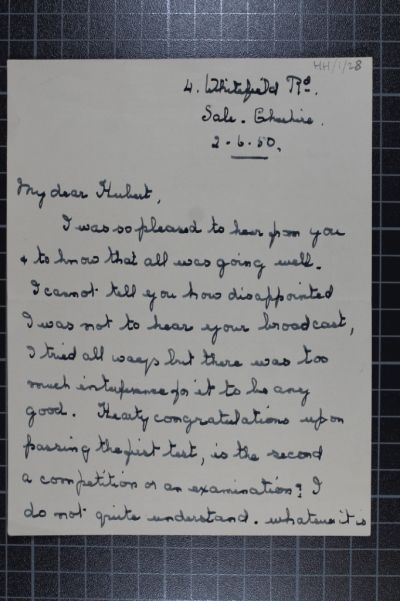 HH/1/28
4. Whitefield Rd.
Sale. Cheshire.
2-6-50.
My dear Hubert,
I was so pleased to hear from you
& to know that all was going well.
I cannot tell you how disappointed
I was not to hear your broadcast,
I tried all ways but there was too
much interference for it to be any
good. Hearty congratulations upon
passing the first test, is the second
a competition or an examination? I
do not quite understand. whatever it is